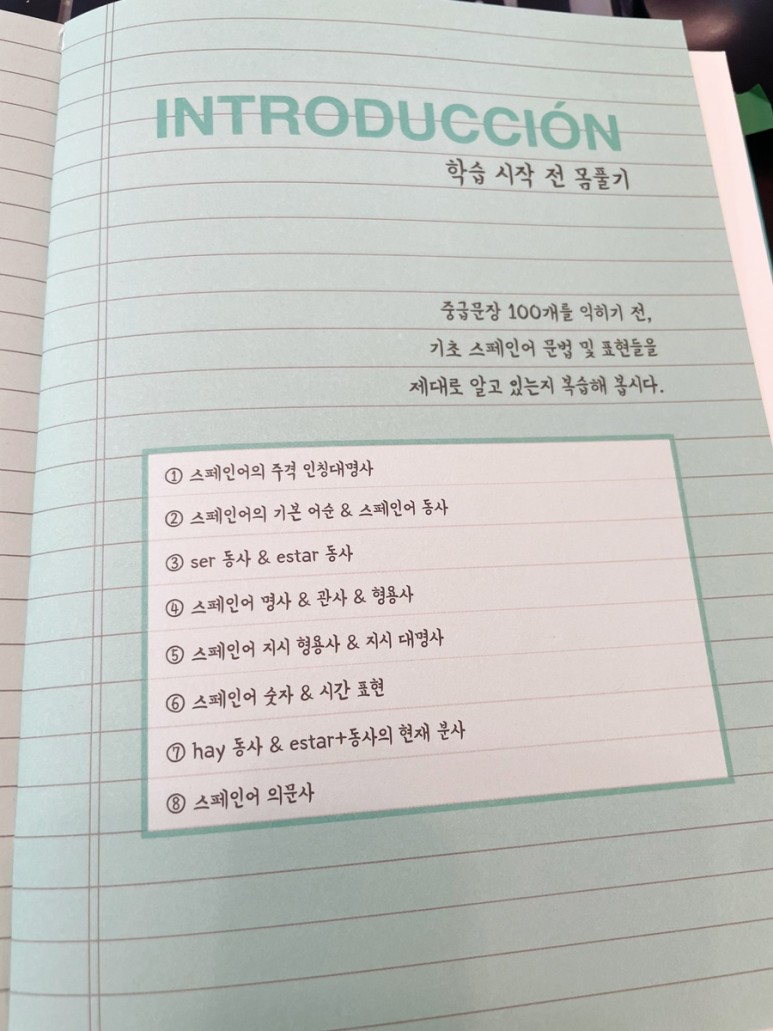 INTRODUCCIÓN
학습 시작 전 몸풀기
중급문장 100개를 익히기 전,
기초 스페인어 문법 및 표현들을
제대로 알고 있는지 복습해 봅시다.
① 스페인어의 주격 인칭대명사
② 스페인어의 기본 어순 & 스페인어 동사
③ ser 동사 & estar 동사
④ 스페인어 명사 & 관사 & 형용사
⑤ 스페인어 지시 형용사 & 지시 대명사
⑥ 스페인어 숫자 & 시간 표현
⑦ hay 동사 & estar+동사의 현재 분사
⑧ 스페인어 의문사